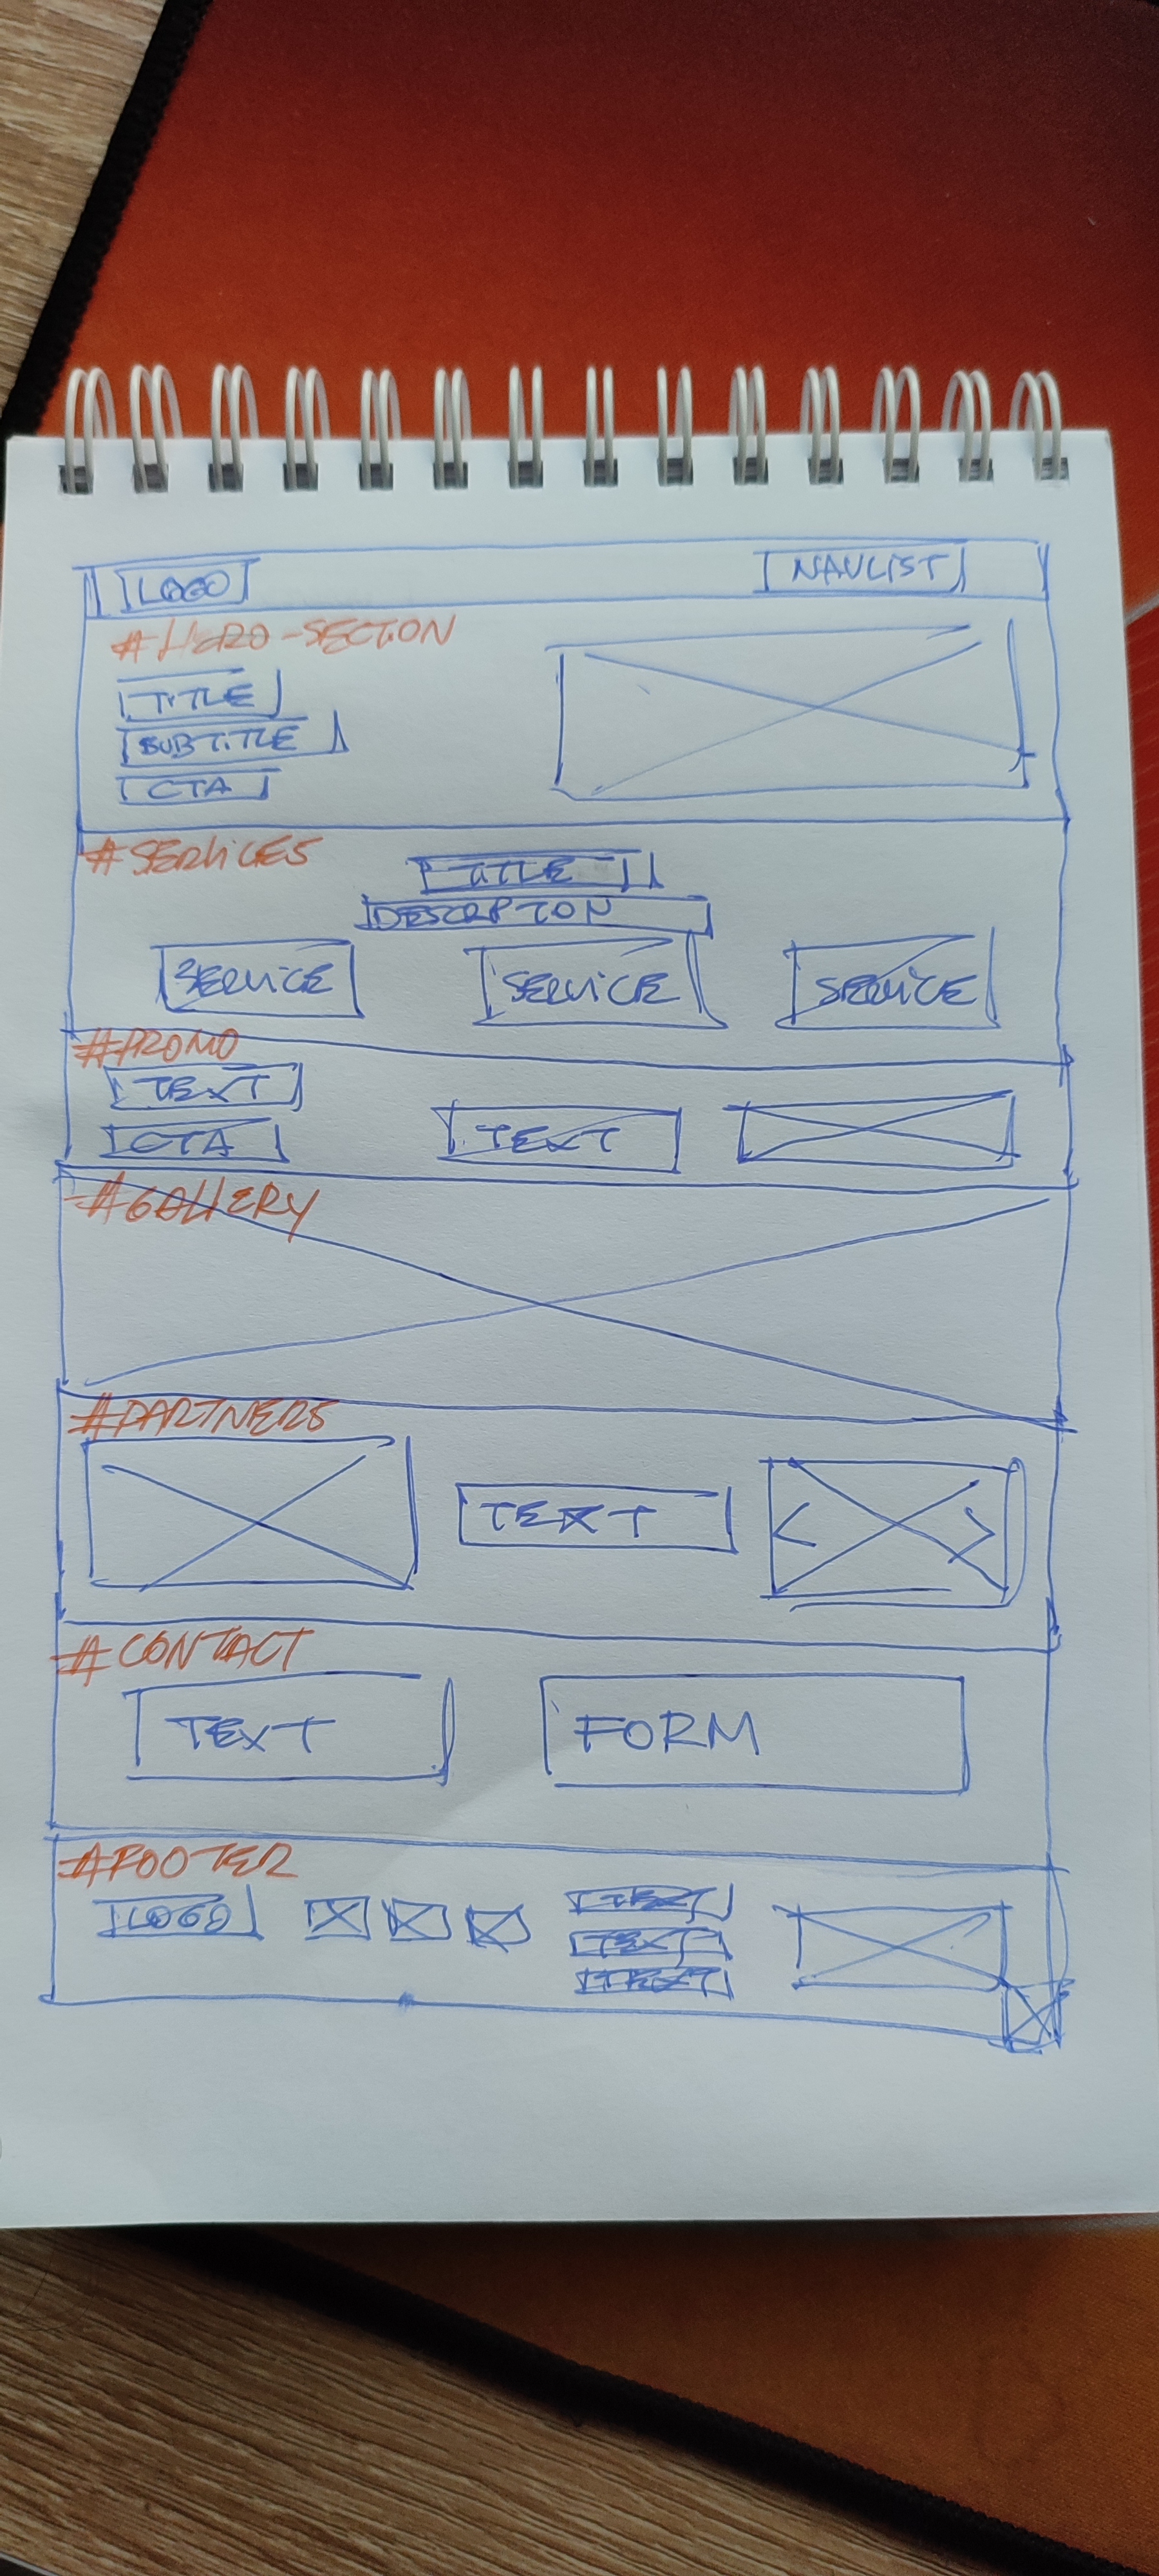 LOGO NAVLIST
#HERO-SECTION
TITLE
SUBTITLE
CTA
#SERVICES
TITLE
DESCRPTION
SERVICE SERVICE SERVICE
#PROMO
TEXT
CTA TEXT
#GALLERY
#PARTNERS
TEXT
< >
#CONTACT
TEXT FORM
#FOOTER
LOGO TEXT
TEXT
TEXT